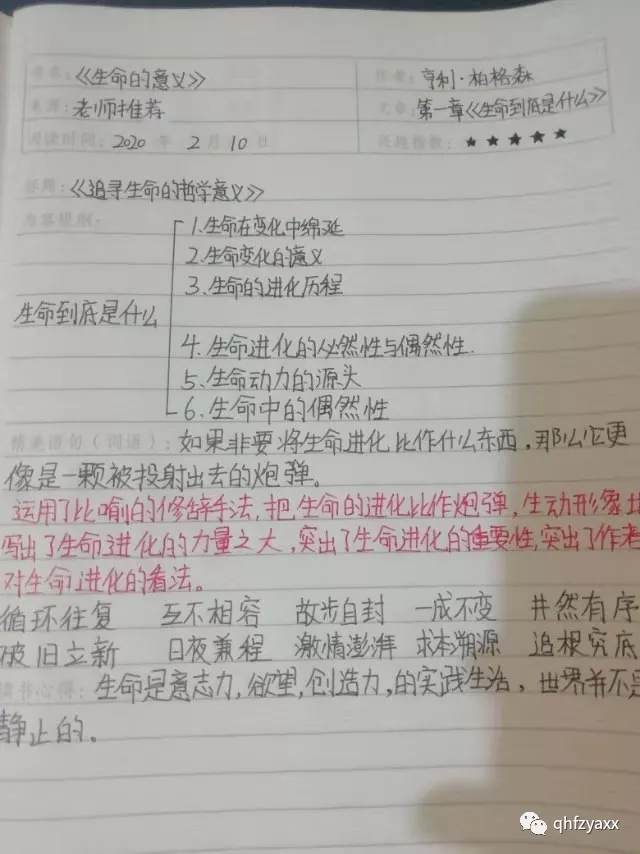 书名：《生命的意义》 作者：亨利·柏格森
来源：老师推荐 文章：第一章《生命到底是什么》
阅读时间：2020 年 2 月 10 日 推荐指数：★★★★★
《追寻生命的哲学意义》
内容提纲：
1.生命在变化中绵延
2.生命变化的意义
3.生命的进化历程
生命到底是什么
4.生命进化的必然性与偶然性.
5.生命动力的源头
6.生命中的偶然性
精美语句（词语）：如果非要将生命进化比作什么东西，那么它更
像是一颗被投射出去的炮弹。
运用了比喻的修辞手法，把生命的进化比作炮弹，生动形象地
写出了生命进化的力量之大，突出了生命进化的重要性，突出了作者
对生命进化的看法。
循环往复 互不相容 故步自封 一成不变 井然有序
破旧立新 日夜兼程 激情澎湃 求本溯源 追根究底
读书心得：生命是意志力，欲望，创造力，的实践生活，世界并不是
静止的。
qhfzyaxx